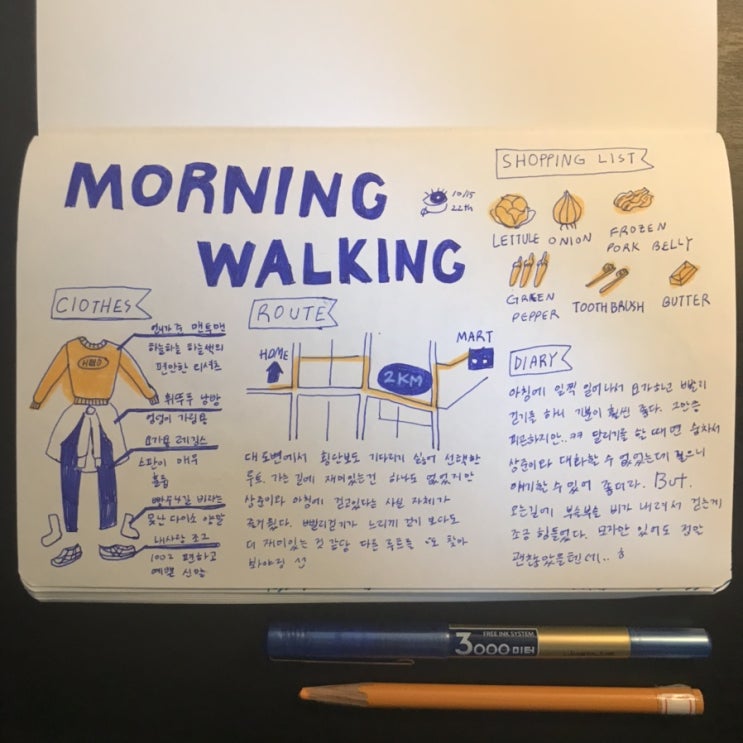 MORNING
WALKING
10/15
22th
SHOPPING LIST
LETTULE
ONION
FROZEN
PORK BELLY
GREEN
PEPPER
TOOTHBRUSH
BUTTER
CLOTHES
언니가 준 맨투맨
하늘하늘 하늘색의
편안한 티셔츠
휘뚜루 남방
엉덩이 가림용
요가용 레깅스
스판이 매우
훌륭
빵꾸4길
못난 다이소 양말
내사랑 조고
100% 편하고
예쁜 신발
ROUTE
HOME
2KM
MART
대로변에서 횡단보도 기다리기 싫어 선택한
루트. 가는 길에 재미있는건 하나도 없었지만
상준이와 아침에 걷고있다는 사실 자체가
즐거웠다. 빨리걷기가 느리게 걷기 보다도
더 재미있는 것 같당 다른 루트를 또 찾아
봐야징
DIARY
아침에 일찍 일어나서 요가하고 빨리
걷기를 하니 기분이 훨씬 좋다. 그만큼
피곤하지만.. ㅋㅋ 달리기를 할 때면 숨차서
상준이와 대화할 수 없었는데 걸으니
얘기할 수 있어 좋더라. But.
오는길에 부슬부슬 비가 내려서 걷는게
조금 힘들었다. 모자만 있어도 정말
괜찮았을텐데..
FREE INK SYSTEM
3000미터